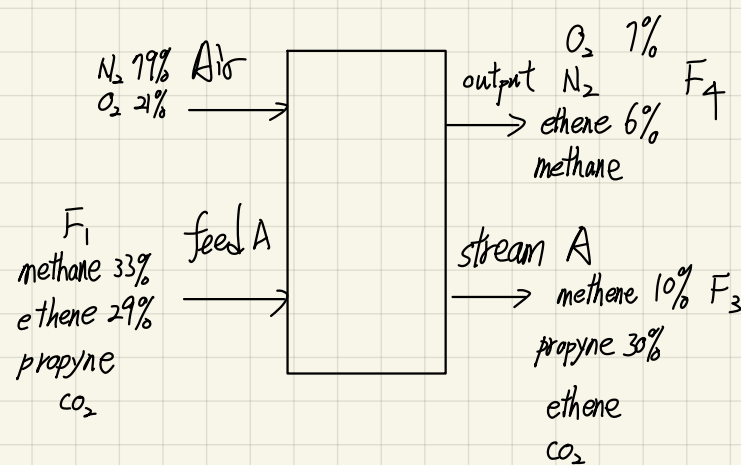 N₂ 79% Air
O₂ 21%
F₁
feed A
methane 33%
ethene 29%
propyne
CO₂
O₂ 7%
output N₂ F₄
ethene 6%
methane
stream A
methene 10% F₃
propyne 30%
ethene
CO₂